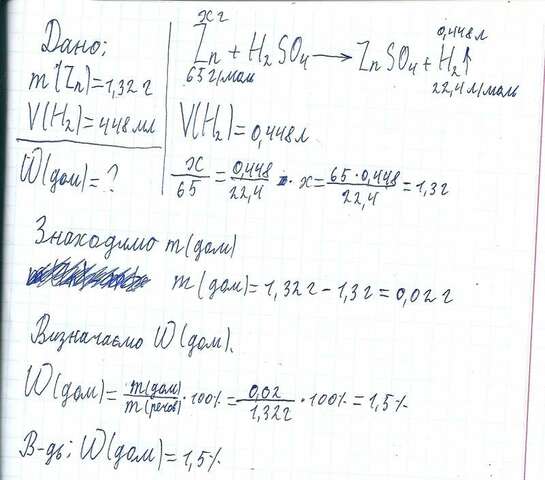 Дано:
m(Zn)=1,32 г
V(H₂)=448 мл
W(дом)=?
x г
0,448 л
Zn + H₂SO₄ → ZnSO₄ + H₂↑
65 г/моль
22,4 л/моль
V(H₂)=0,448 л
x/65 = 0,448/22,4 · x = 65·0,448/22,4 = 1,3 г
Знаходимо m(дом)
m(дом)=1,32 г – 1,3 г = 0,02 г
Визначаємо W(дом).
W(дом)= m(дом)/m(речов) · 100% = 0,02/1,32 г · 100% = 1,5%
В-дь: W(дом)=1,5%